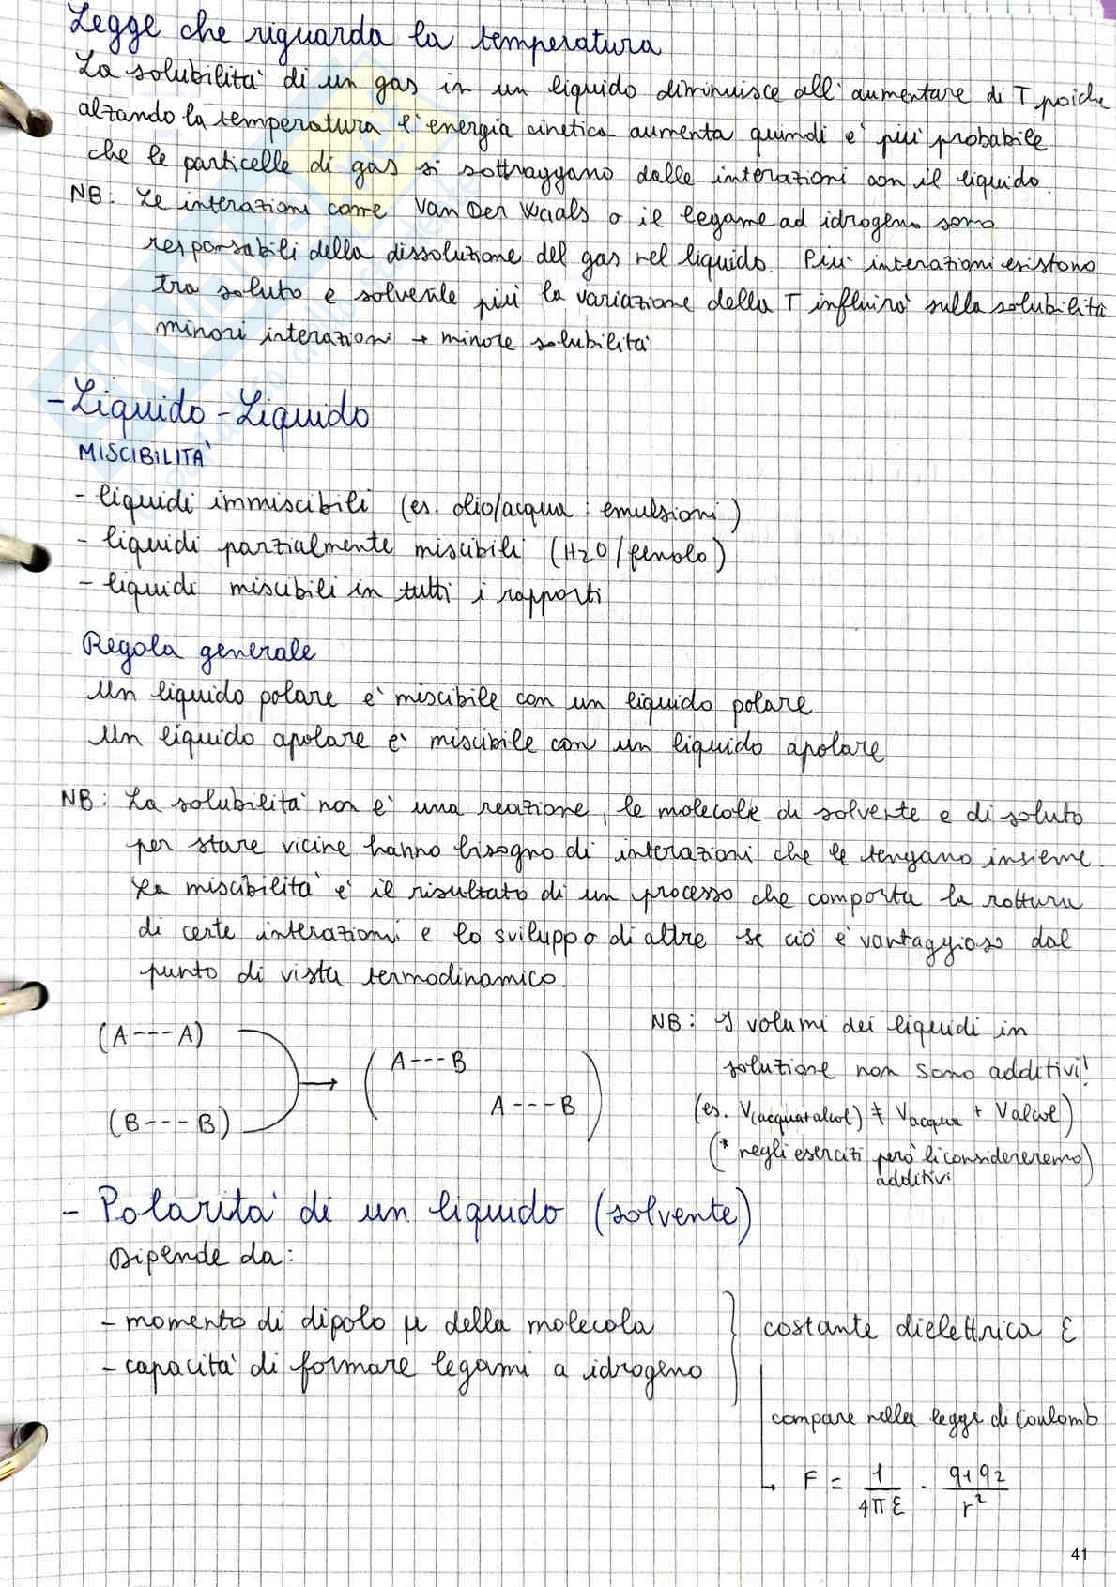 Legge che riguarda la temperatura
La solubilità di un gas in un liquido diminuisce all'aumentare di T poiché
alzando la temperatura l'energia cinetica aumenta quindi e' più probabile
che le particelle di gas si sottraggano dalle interazioni con il liquido.
NB: Le interazioni come Van Der Waals o il legame ad idrogeno sono
responsabili della dissoluzione del gas nel liquido. Più interazioni esistono
tra soluto e solvente più la variazione della T influirà sulla solubilità
minori interazioni → minore solubilità
- Liquido - Liquido
MISCIBILITA'
- liquidi immiscibili (es. olio/acqua : emulsioni)
- liquidi parzialmente miscibili (H2O/fenolo)
- liquidi miscibili in tutti i rapporti
Regola generale
Un liquido polare e' miscibile con un liquido polare
Un liquido apolare e' miscibile con un liquido apolare
NB: La solubilità non e' una reazione, le molecole di solvente e di soluto
per stare vicine hanno bisogno di interazioni che le tengano insieme.
La miscibilità e' il risultato di un processo che comporta la rottura
di certe interazioni e lo sviluppo di altre se ciò e' vantaggioso dal
punto di vista termodinamico.
(A---A)
(B---B)
→ (A---B
A---B)
NB: I volumi dei liquidi in
soluzione non sono additivi!
(es. V(acqua+alcol) ≠ Vacqua + Valcol)
(* negli esercizi però li considereremo)
additivi
- Polarità di un liquido (solvente)
Dipende da:
- momento di dipolo μ della molecola
- capacità di formare legami a idrogeno
} costante dielettrica ε
compare nella legge di Coulomb
↳ F = 1/4πε · q1q2/r²
41